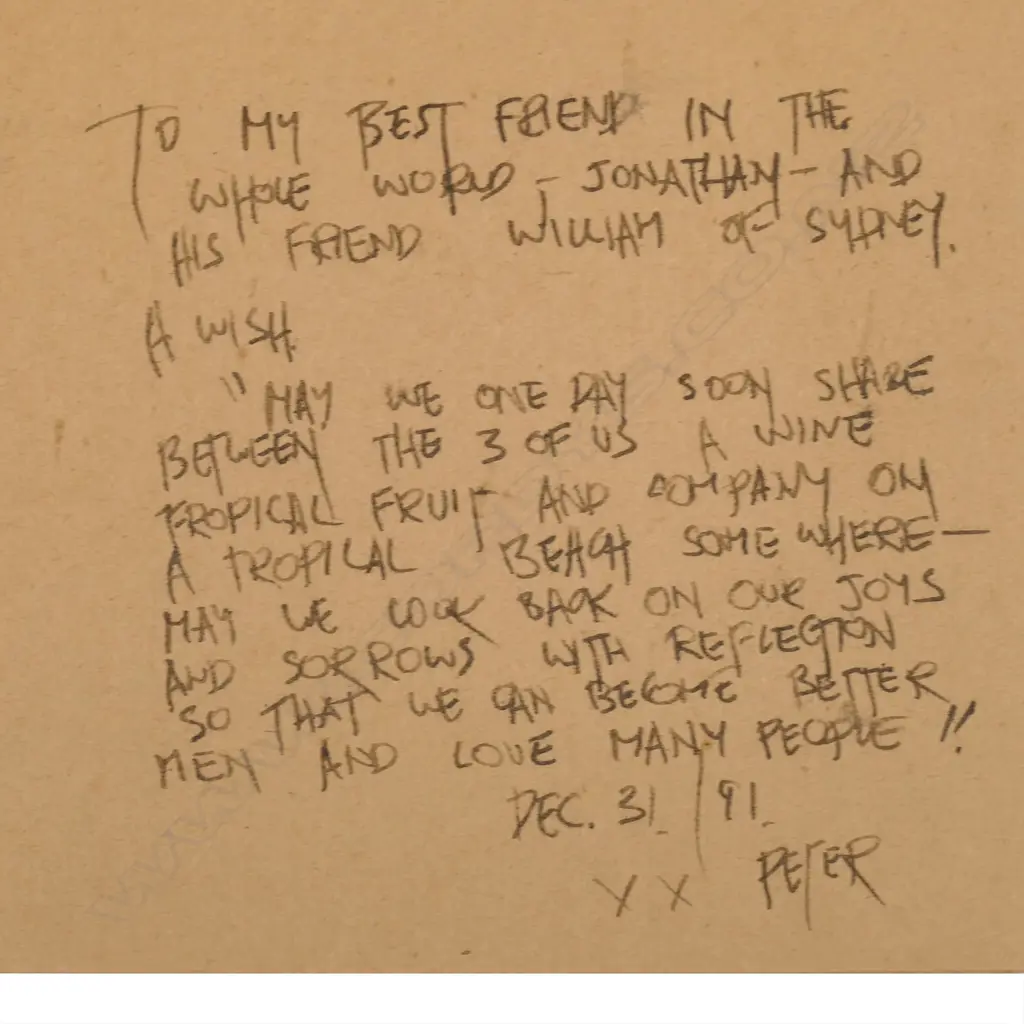 TO MY BEST FRIEND IN THE
WHOLE WORLD - JONATHAN - AND
HIS FRIEND WILLIAM OF SYDNEY.
A WISH.
"MAY WE ONE DAY SOON SHARE
BETWEEN THE 3 OF US A WINE
TROPICAL FRUIT AND COMPANY ON
A TROPICAL BEACH SOMEWHERE —
MAY WE LOOK BACK ON OUR JOYS
AND SORROWS WITH REFLECTION
SO THAT WE CAN BECOME BETTER
MEN AND LOVE MANY PEOPLE !!
DEC. 31 / 91.
X X PETER